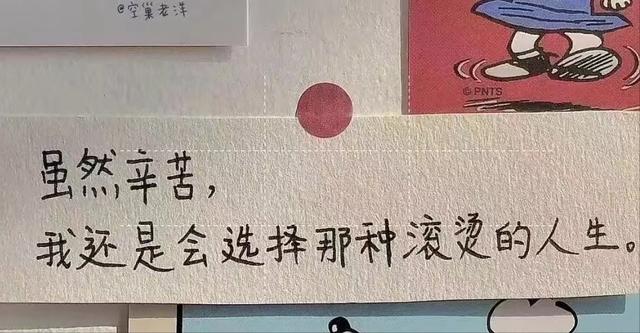 @空巢老洋
© PNTS
虽然辛苦,
我还是会选择那种滚烫的人生。